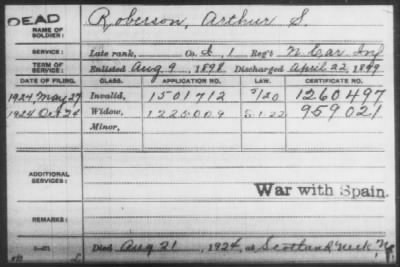 DEAD
NAME OF SOLDIER: Roberson, Arthur S.
SERVICE: Late rank, Co. I, 1 Reg't N. Car Inf
TERM OF SERVICE: Enlisted Aug 9, 1898 Discharged April 22, 1899
DATE OF FILING. CLASS. APPLICATION NO. LAW. CERTIFICATE NO.
1924, May 27 Invalid, 1501712 1260497
1924 Oct 24 Widow, 1225009 5-1-22 959021
Minor,
ADDITIONAL SERVICES:
War with Spain.
REMARKS:
Died Aug 21, 1924, at Scotland Neck, N.C.